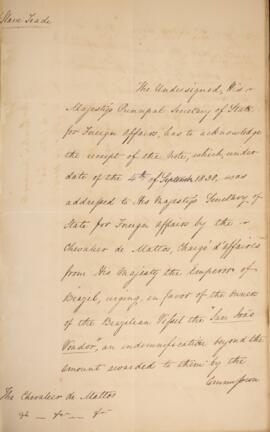 Slave Trade
The Undersigned, His
Majesty's Principal Secretary of State
for Foreign Affairs, has to acknowledge
the receipt of the Note, which, under
date of the 4th of September 1830, was
addressed to His Majesty's Secretary of
State for Foreign Affairs by the
Chevalier de Mattos, Chargé d'Affaires
from His Majesty the Emperor of
Brazil, urging, in favor of the Owners
of the Brazilian Vessel the "San Joâo
", an indemnification beyond the
amount awarded to them by the
Commission
The Chevalier de Mattos